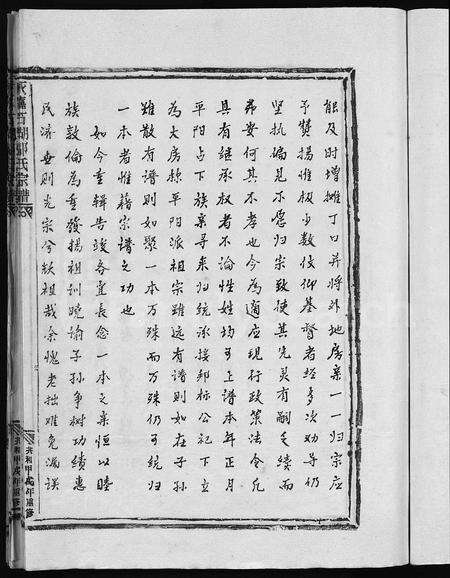 能及时增摊丁口并将外地房亲一一归宗应
予赞扬惟极少数仗仰基督者经多次劝导仍
坚执偏见不愿归宗致使其先灵有嗣乏续而
吊奠何其不孝也今为适应现行政策法令凡
具有继承权者不论性姓均可上谱本年正月
平阳占下族亲寻来归统承接邦标公祀下立
为大房称平阳派祖宗虽远有谱则如在子孙
虽散有谱则如聚一本万殊而万殊仍可统归
一本者惟藉宗谱之功也
如今重辑告竣各宜长念一本之亲恒以睦
族敦伦为重发扬祖训晓谕子孙争树功绩惠
民济世则光宗兮妖祖哉余愧老拙难免漏误
永嘉百湖郭氏宗谱
共和甲戌年重修